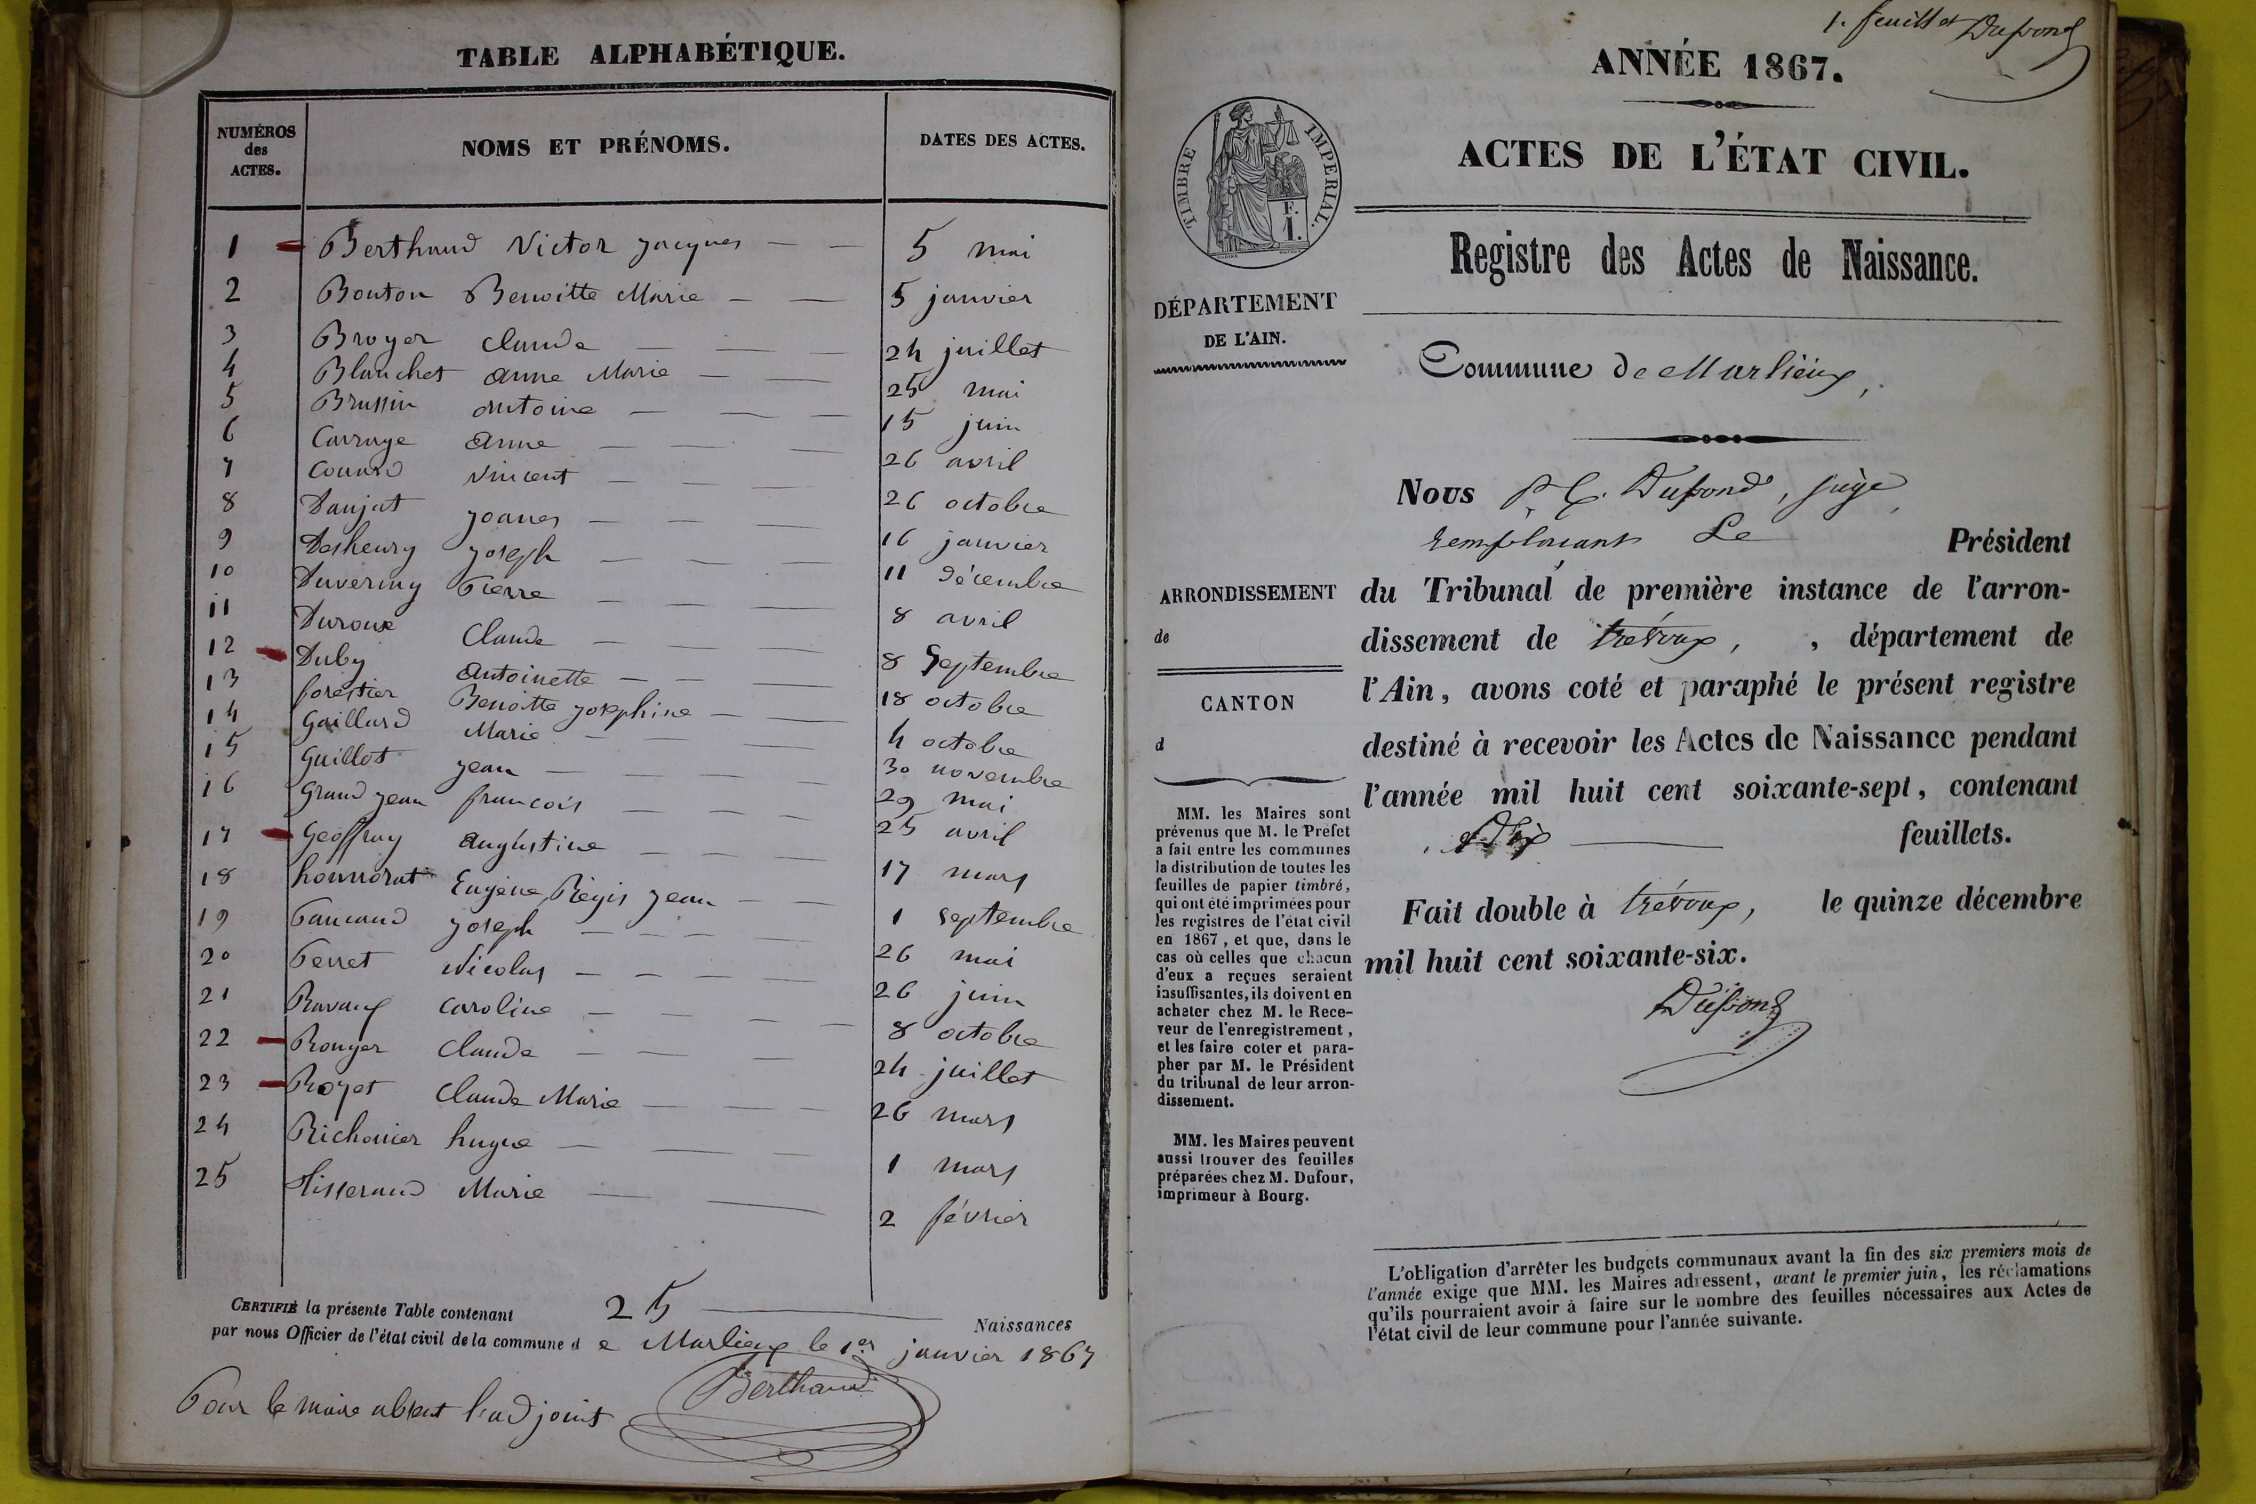 TABLE ALPHABÉTIQUE.
NUMÉROS des ACTES. NOMS ET PRÉNOMS. DATES DES ACTES.
1 Berthaud Victor Jacques 5 mai
2 Bouton Benoitte Marie 5 janvier
3 Broyer Claude 24 juillet
4 Blanchet Anne Marie 25 mai
5 Brussin Antoine 15 juin
6 Carrage Anne 26 avril
7 Couard Vincent 26 octobre
8 Danjat Joanes 16 janvier
9 Deshenry Joseph 11 décembre
10 Duverney Pierre 8 avril
11 Duroux Claude 8 Septembre
12 Duby Antoinette 18 octobre
13 forestier Benoitte Josephine 4 octobre
14 Gaillard Marie 30 novembre
15 Guillot Jean 29 mai
16 Grandjean françois 25 avril
17 Geoffray Augustine 17 mars
18 honnorat Eugène Régis Jean 1 septembre
19 Pancaud Joseph 26 mai
20 Perret Nicolas 26 juin
21 Ravaux Caroline 8 octobre
22 Rouyer Claude 24 juillet
23 Royet Claude Marie 26 mars
24 Richonier hugue 1 mars
25 Tisserand Marie 2 février
CERTIFIÉ la présente Table contenant 25 Naissances
par nous Officier de l'état civil de la commune de Marlieux le 1er janvier 1867
Pour le maire absent l'adjoint
Berthaud
1. feuillet Dupond
ANNÉE 1867.
ACTES DE L'ÉTAT CIVIL.
TIMBRE IMPÉRIAL.
F.
1.
Registre des Actes de Naissance.
DÉPARTEMENT
DE L'AIN.
Commune de Marlieux,
Nous P. C. Dupond, juge
remplacant Le Président
du Tribunal de première instance de l'arron-
dissement de trévoux, , département de
l'Ain, avons coté et paraphé le présent registre
destiné à recevoir les Actes de Naissance pendant
l'année mil huit cent soixante-sept, contenant
Dix feuillets.
Fait double à trévoux, le quinze décembre
mil huit cent soixante-six.
Dupond
ARRONDISSEMENT
de
CANTON
d
MM. les Maires sont
prévenus que M. le Préfet
a fait entre les communes
la distribution de toutes les
feuilles de papier timbré,
qui ont été imprimées pour
les registres de l'état civil
en 1867, et que, dans le
cas où celles que chacun
d'eux a reçues seraient
insuffisantes, ils doivent en
acheter chez M. le Rece-
veur de l'enregistrement,
et les faire coter et para-
pher par M. le Président
du tribunal de leur arron-
dissement.
MM. les Maires peuvent
aussi trouver des feuilles
préparées chez M. Dufour,
imprimeur à Bourg.
L'obligation d'arrêter les budgets communaux avant la fin des six premiers mois de
l'année exige que MM. les Maires adressent, avant le premier juin, les réclamations
qu'ils pourraient avoir à faire sur le nombre des feuilles nécessaires aux Actes de
l'état civil de leur commune pour l'année suivante.